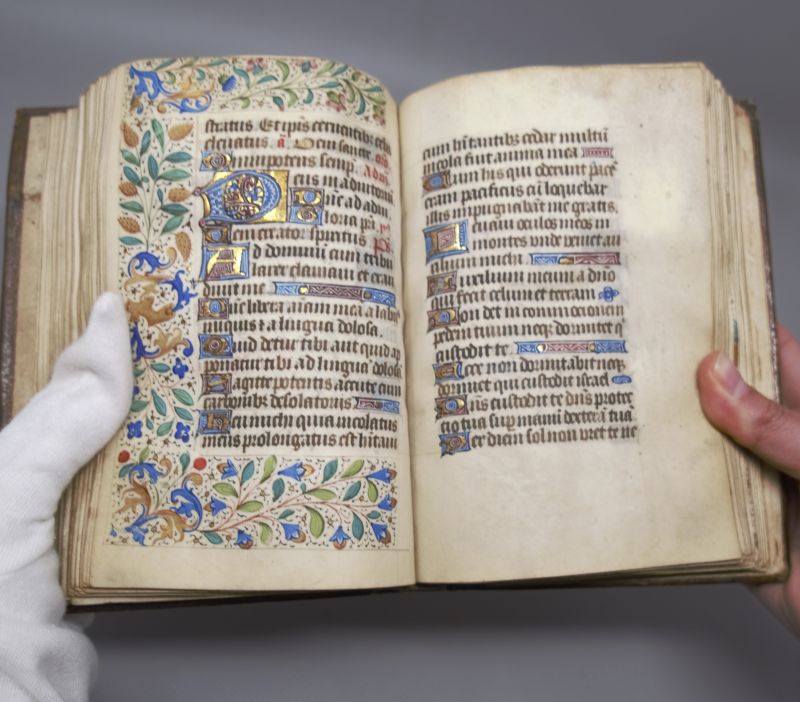 stratus. Et ipis cernentibz
eleuatus. a
Omnipotens semp.
Deus in adiutoriu
Dne ad adiu
Gloria pri.
Veni creator spiritus Ps
Ad dominum cum tribu
larer clamaui et exau
diuit me
Dne libera aiam mea a labijs
iniquis & a lingua dolosa.
Quid detur tibi aut quid ap
ponatur tibi ad lingua dolosa
Sagitte potentis accute cum
carbonibz desolatoriis
Heu michi quia incolatus
meus prolongatus est hitaui
cum hitantibz cedar multu
incola fuit anima mea
Cum his qui oderunt pace
eram pacificus cu loquebar
illis impugnabat me gratis.
Leuaui oculos meos in
montes vnde veniet au
xilium michi
Auxilium meum a dno
qui fecit celum et terram
Non det in commocionem
pedem tuum neqz dormitet q
custodit te
Ecce non dormitabit neqz
dormiet qui custodit israel
Dns custodit te dns protec
cio tua sup manu dextera tua
Per diem sol non vret te ne